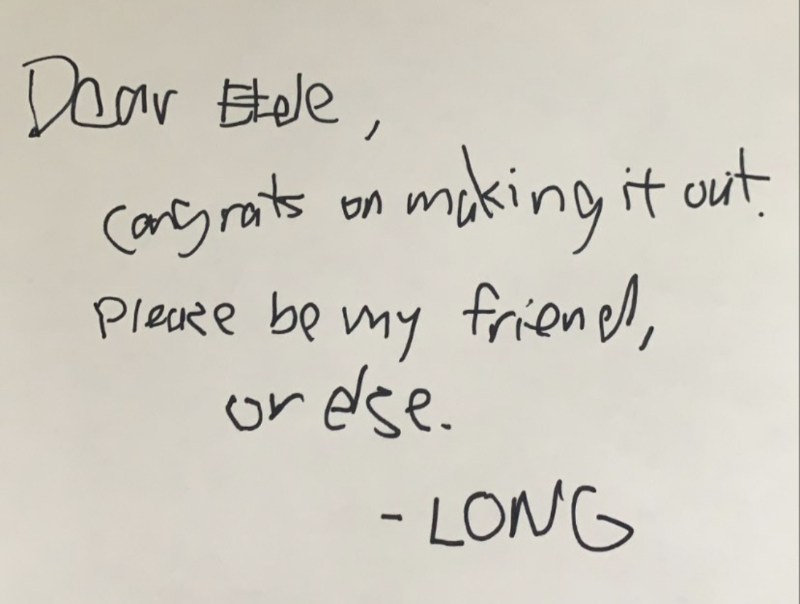 Dear
congrats on making it out.
please be my friend,
or else.
- LONG